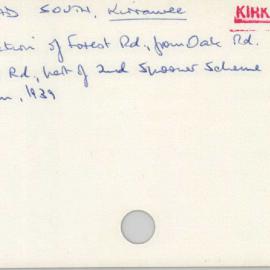 AD SOUTH, Kirrawee KIRK
ction of Forest Rd., from Oak Rd.
Rd, part of 2nd Spooner Scheme
, 1939